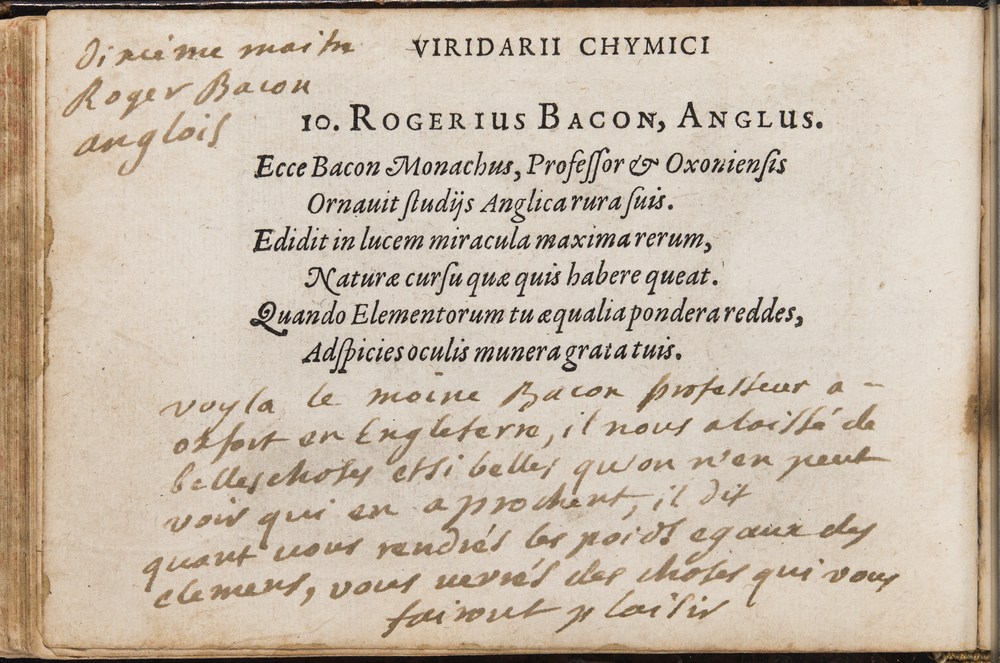 dixieme maitre
Roger Bacon
anglois
VIRIDARII CHYMICI
10. ROGERIUS BACON, ANGLUS.
Ecce Bacon Monachus, Professor & Oxoniensis
Ornauit studijs Anglica rura suis.
Edidit in lucem miracula maxima rerum,
Naturæ cursu quæ quis habere queat.
Quando Elementorum tu æqualia pondera reddes,
Adspicies oculis munera grata tuis.
voyla le moine Bacon professeur a
oxfort en Engleterre, il nous a laissé de
belles choses et si belles qu'on n'en peut
voir qui en aprochent, il dit
quant vous rendrés les poids egaux des
elemens, vous verrés des choses qui vous
fairont plaisir